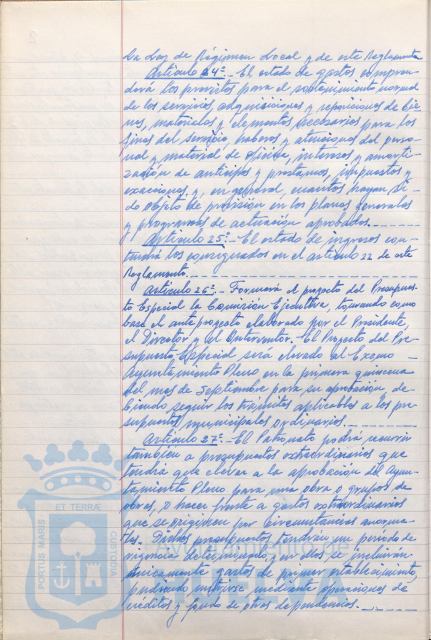 la Ley de Régimen Local y de este Reglamento
Artículo 24º.- El estado de gastos compren-
derá los precisos para el sostenimiento normal
de los servicios, adquisiciones y reposiciones de bie-
nes, materiales y elementos necesarios para los
fines del servicio, haberes y atenciones del perso-
nal y material de oficina, intereses y amorti-
zación de anticipos y préstamos, impuestos y
exacciones, y, en general, cuantos hayan si-
do objeto de previsión en los planes generales
y programas de actuación aprobados.
Artículo 25º.- El estado de ingresos con-
tendrá los consignados en el artículo 22 de este
Reglamento.
Artículo 26º.- Formará el proyecto del Presupues-
to Especial la Comisión Ejecutiva, tomando como
base el anteproyecto elaborado por el Presidente,
el Director y el Interventor. El Proyecto del Pre-
supuesto Especial será elevado al Excmo
Ayuntamiento Pleno en la primera quincena
del mes de Septiembre para su aprobación de-
biendo seguir los trámites aplicables a los pre-
supuestos municipales ordinarios.
Artículo 27º.- El Patronato podrá recurrir
también a presupuestos extraordinarios que
tendrá que elevar a la aprobación del Ayun-
tamiento Pleno para una obra o grupos de
obras, o hacer frente a gastos extraordinarios
que se originen por circunstancias anorma-
les. Dichos presupuestos tendrán un período de
vigencia determinado y en ellos se incluirán
únicamente gastos de primer establecimiento,
pudiendo nutrirse mediante operaciones de
créditos y fondo de otras dependencias.
PORTUS MARIS ET TERRAE CUSTODIA